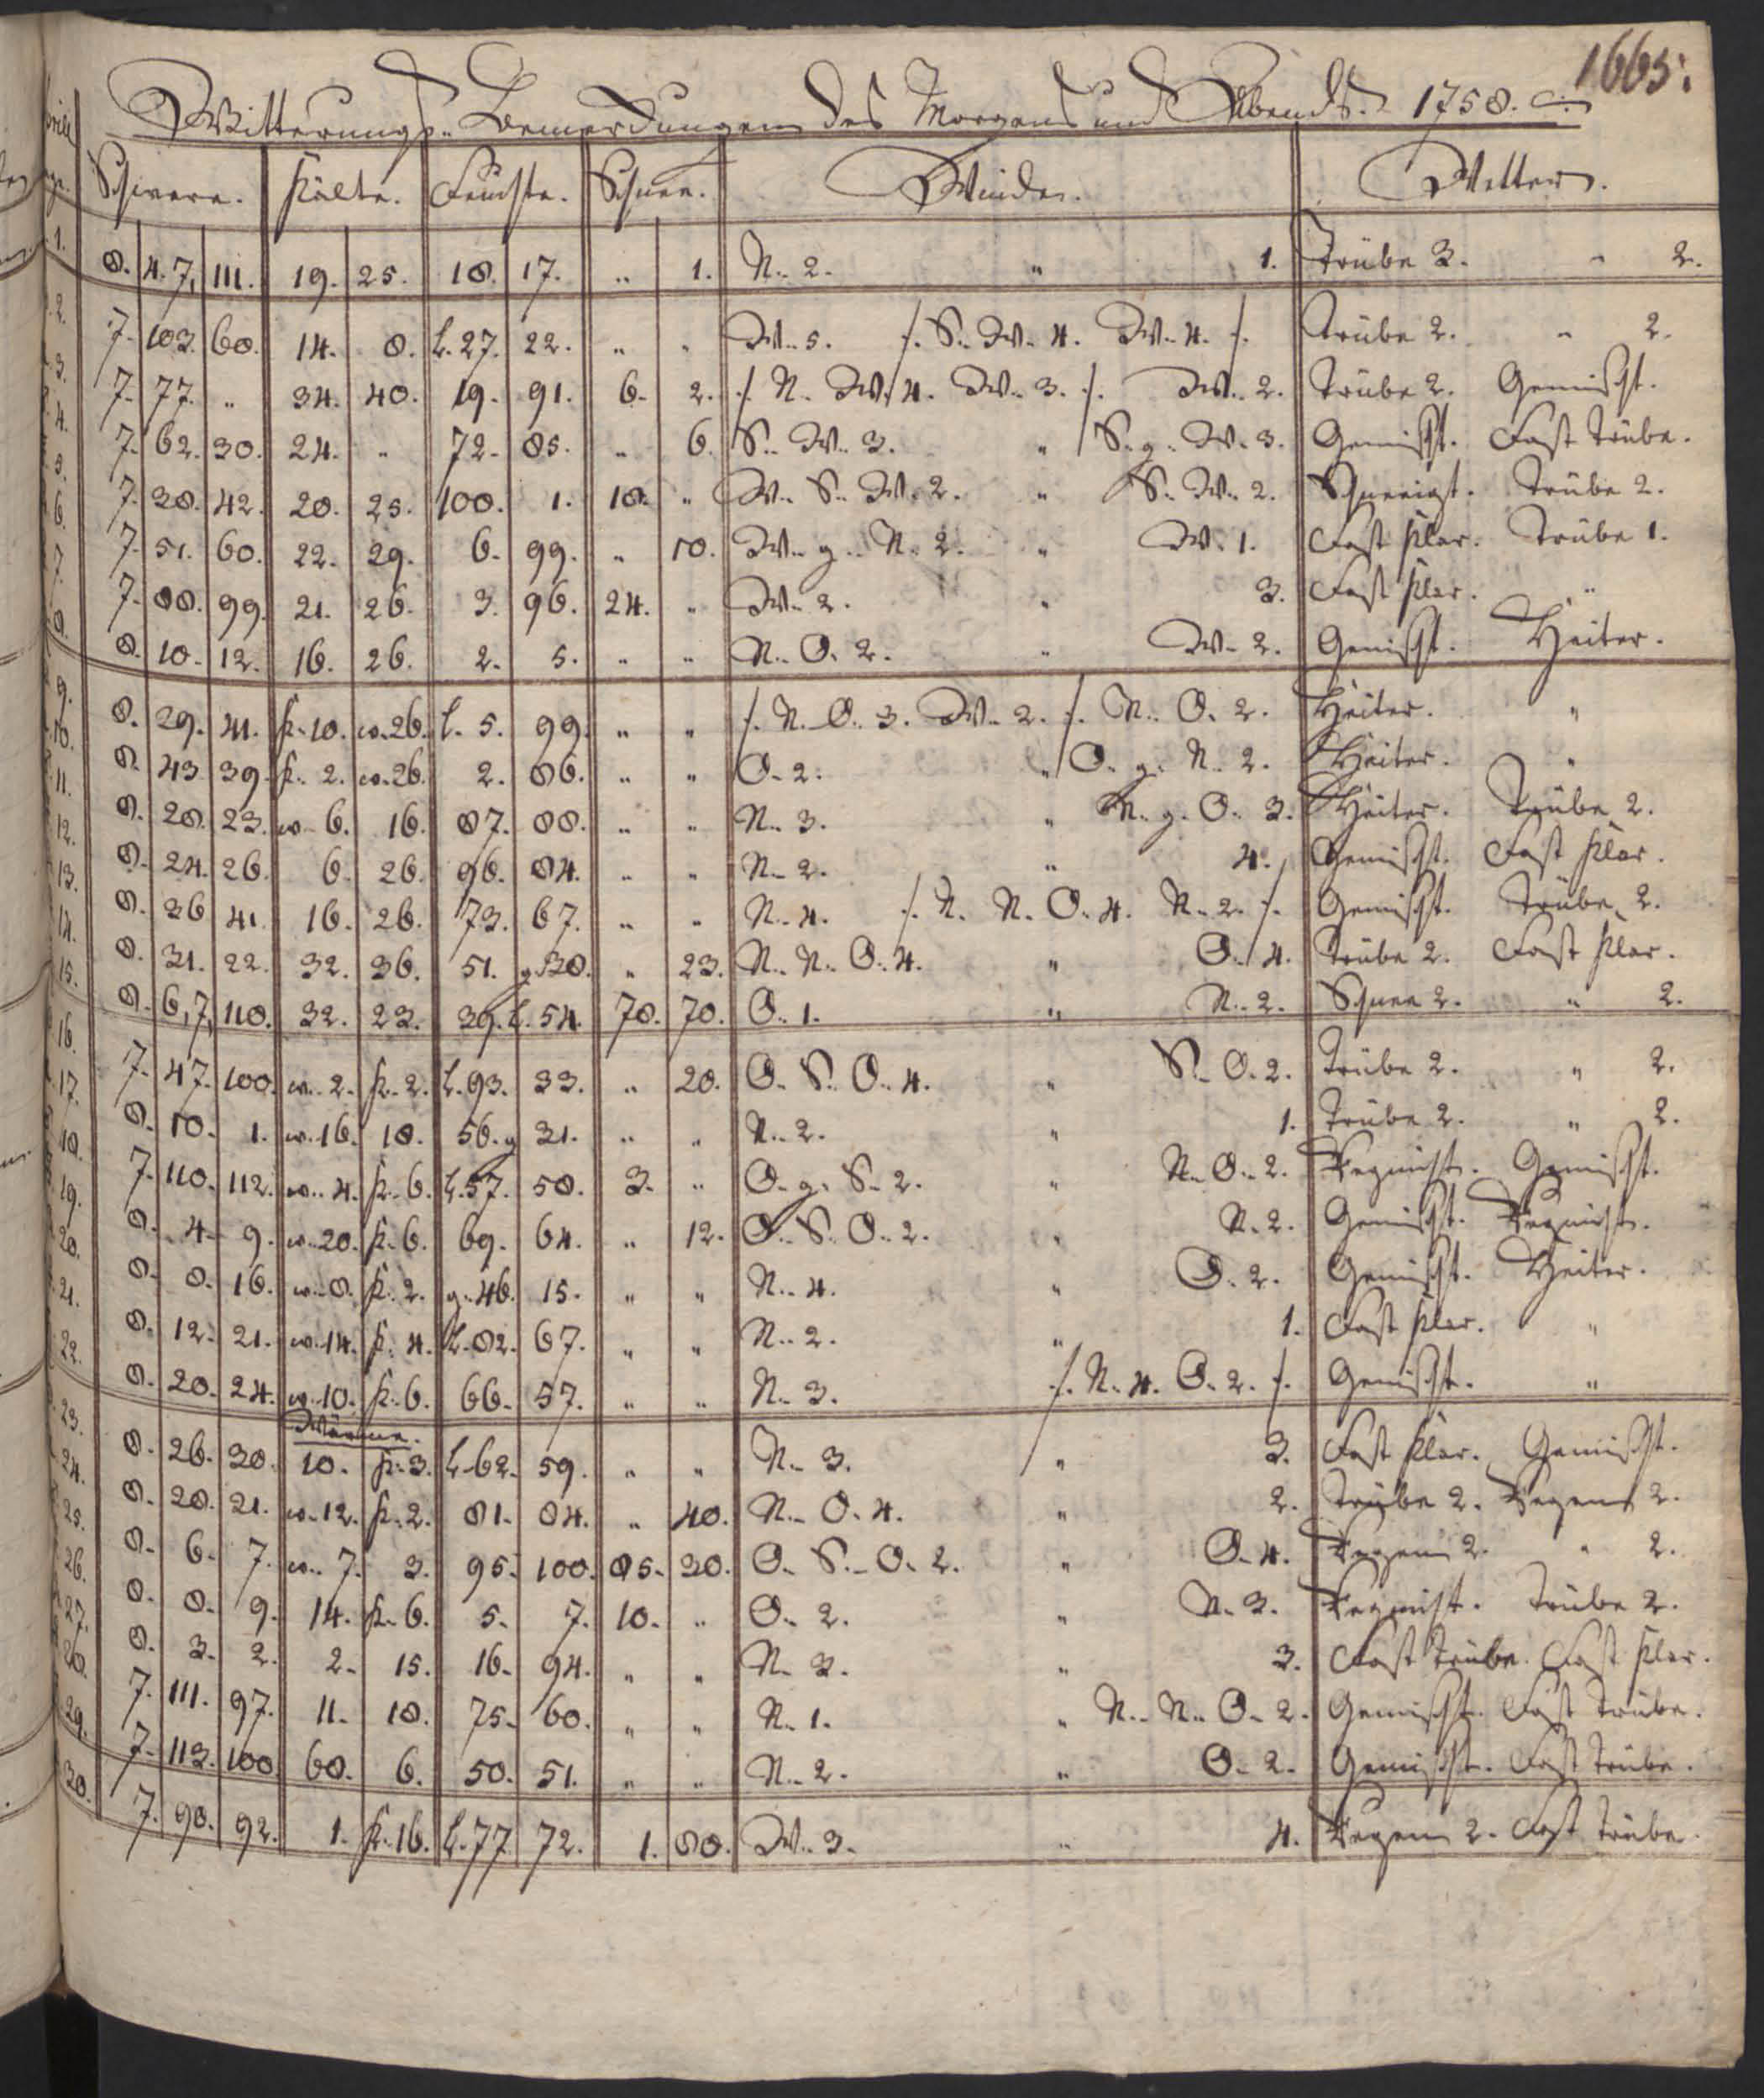 1665.
Witterungs-Bemerckungen des Morgens und Abends. 1758.
Schwere. Kälte. Feuchte. Schnee. Winde. Wetter.
1. 8. 4. 7, 111. 19. 25. 18. 17. " 1. N. 2. " 1. Trübe 3. " 2.
2. 7. 103. 60. 14. 8. L. 27. 22. " " W. 5. /. S. W. 4. W. 4. /. Trübe 2. " 2.
3. 7. 77. " 34. 40. 19. 91. 6. 2. /. N. W. 4. W. 3. /. W. 2. Trübe 2. Gemischt.
4. 7. 62. 30. 24. " 72. 85. " 6. S. W. 3. " S. g. W. 3. Gemischt. Fast Trübe.
5. 7. 38. 42. 20. 25. 100. 1. 18. " W. S. W. 2. " S. W. 2. Schneeigt. Trübe 2.
6. 7. 51. 60. 22. 29. 6. 99. " 10. W. g. N. 2. " W. 1. Fast klar. Trübe 1.
7. 7. 88. 99. 21. 26. 3. 96. 24. " W. 2. " 3. Fast klar. "
8. 8. 10. 12. 16. 26. 2. 5. " " N. O. 2. " W. 2. Gemischt. Heiter.
9. 8. 29. 41. k. 10. w. 26. L. 5. 99. " " /. N. O. 3. W. 2. /. N. O. 2. Heiter. "
10. 8. 43. 39. k. 2. w. 26. 2. 86. " " O. 2. " O. g. N. 2. Heiter. "
11. 8. 28. 23. w. 6. 16. 87. 88. " " N. 3. " N. g. O. 3. Heiter. Trübe 2.
12. 8. 24. 26. 6. 26. 96. 84. " " N. 2. " 4. Gemischt. Fast klar.
13. 8. 36. 41. 16. 26. 73. 67. " " N. 4. /. N. N. O. 4. N. 2. /. Gemischt. Trübe 2.
14. 8. 31. 22. 32. 36. 51. g. 38. " 23. N. N. O. 4. " O. 4. Trübe 2. Fast klar.
15. 8. 6, 7, 110. 32. 23. 39. L. 54. 70. 70. O. 1. " N. 2. Schnee 2. " 2.
16. 7. 47. 100. w. 2. k. 2. L. 93. 33. " 20. O. S. O. 4. " S. O. 2. Trübe 2. " 2.
17. 8. 10. 1. w. 16. 18. 56. g. 31. " " N. 2. " 1. Trübe 2. " 2.
18. 7. 110. 112. w. 4. k. 6. L. 57. 58. 3. " O. g. S. 2. " N. O. 2. Regnicht. Gemischt.
19. 8. 4. 9. w. 20. k. 6. 69. 64. " 12. O. S. O. 2. " N. 2. Gemischt. Regnicht.
20. 8. 8. 16. w. 8. k. 2. g. 46. 15. " " N. 4. " O. 2. Gemischt. Heiter.
21. 8. 12. 21. w. 14. k. 4. L. 82. 67. " " N. 2. " 1. Fast klar. "
22. 8. 20. 24. w. 10. k. 6. 66. 57. " " N. 3. /. N. 4. O. 2. /. Gemischt. "
Wärme.
23. 8. 26. 30. 10. k. 3. L. 62. 59. " " N. 3. " 3. Fast klar. Gemischt.
24. 8. 28. 21. w. 12. k. 2. 81. 84. " 40. N. O. 4. " 2. Trübe 2. Regen 2.
25. 8. 6. 7. w. 7. 3. 95. 100. 85. 30. O. S. O. 2. " O. 4. Regen 2. " 2.
26. 8. 8. 9. 14. k. 6. 5. 7. 10. " O. 2. " N. 3. Regnicht. Trübe 2.
27. 8. 3. 2. 2. 15. 16. 94. " " N. 3. " 3. Fast Trübe. Fast klar.
28. 7. 111. 97. 11. 18. 75. 60. " " N. 1. " N. N. O. 2. Gemischt. Fast Trübe.
29. 7. 113. 100. 68. 6. 50. 51. " " N. 2. " O. 2. Gemischt. Fast Trübe.
30. 7. 98. 92. 1. k. 16. L. 77. 72. 1. 80. W. 3. " 4. Regen 2. Fast Trübe.